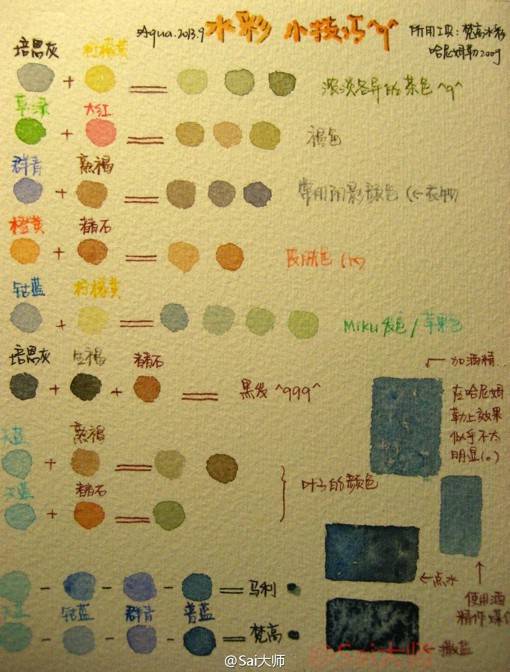 Aqua.2013.9 水彩 小技巧 所用工具:梵高水彩
哈尼姆勒200g
培恩灰 柠檬黄
+ = 浓淡各异的茶色 ^q^
草绿 大红
+ = 褐色
群青 熟褐
+ = 常用阴影颜色 (←衣物)
橙黄 赭石
+ = 皮肤色
钴蓝 柠檬黄
+ = Miku发色/苹果色
培恩灰 生褐 赭石
+ + = 黑发 ^999^
←加酒精..
在哈尼姆
勒上效果
似乎不太
明显(。)
天蓝 熟褐
+ =
天蓝 赭石
+ =
叶子的颜色
←点水
使用酒
- - - = 马利
天蓝 钴蓝 群青 普蓝
- - - = 梵高
←撒盐
@Sai大师
@Sai大师